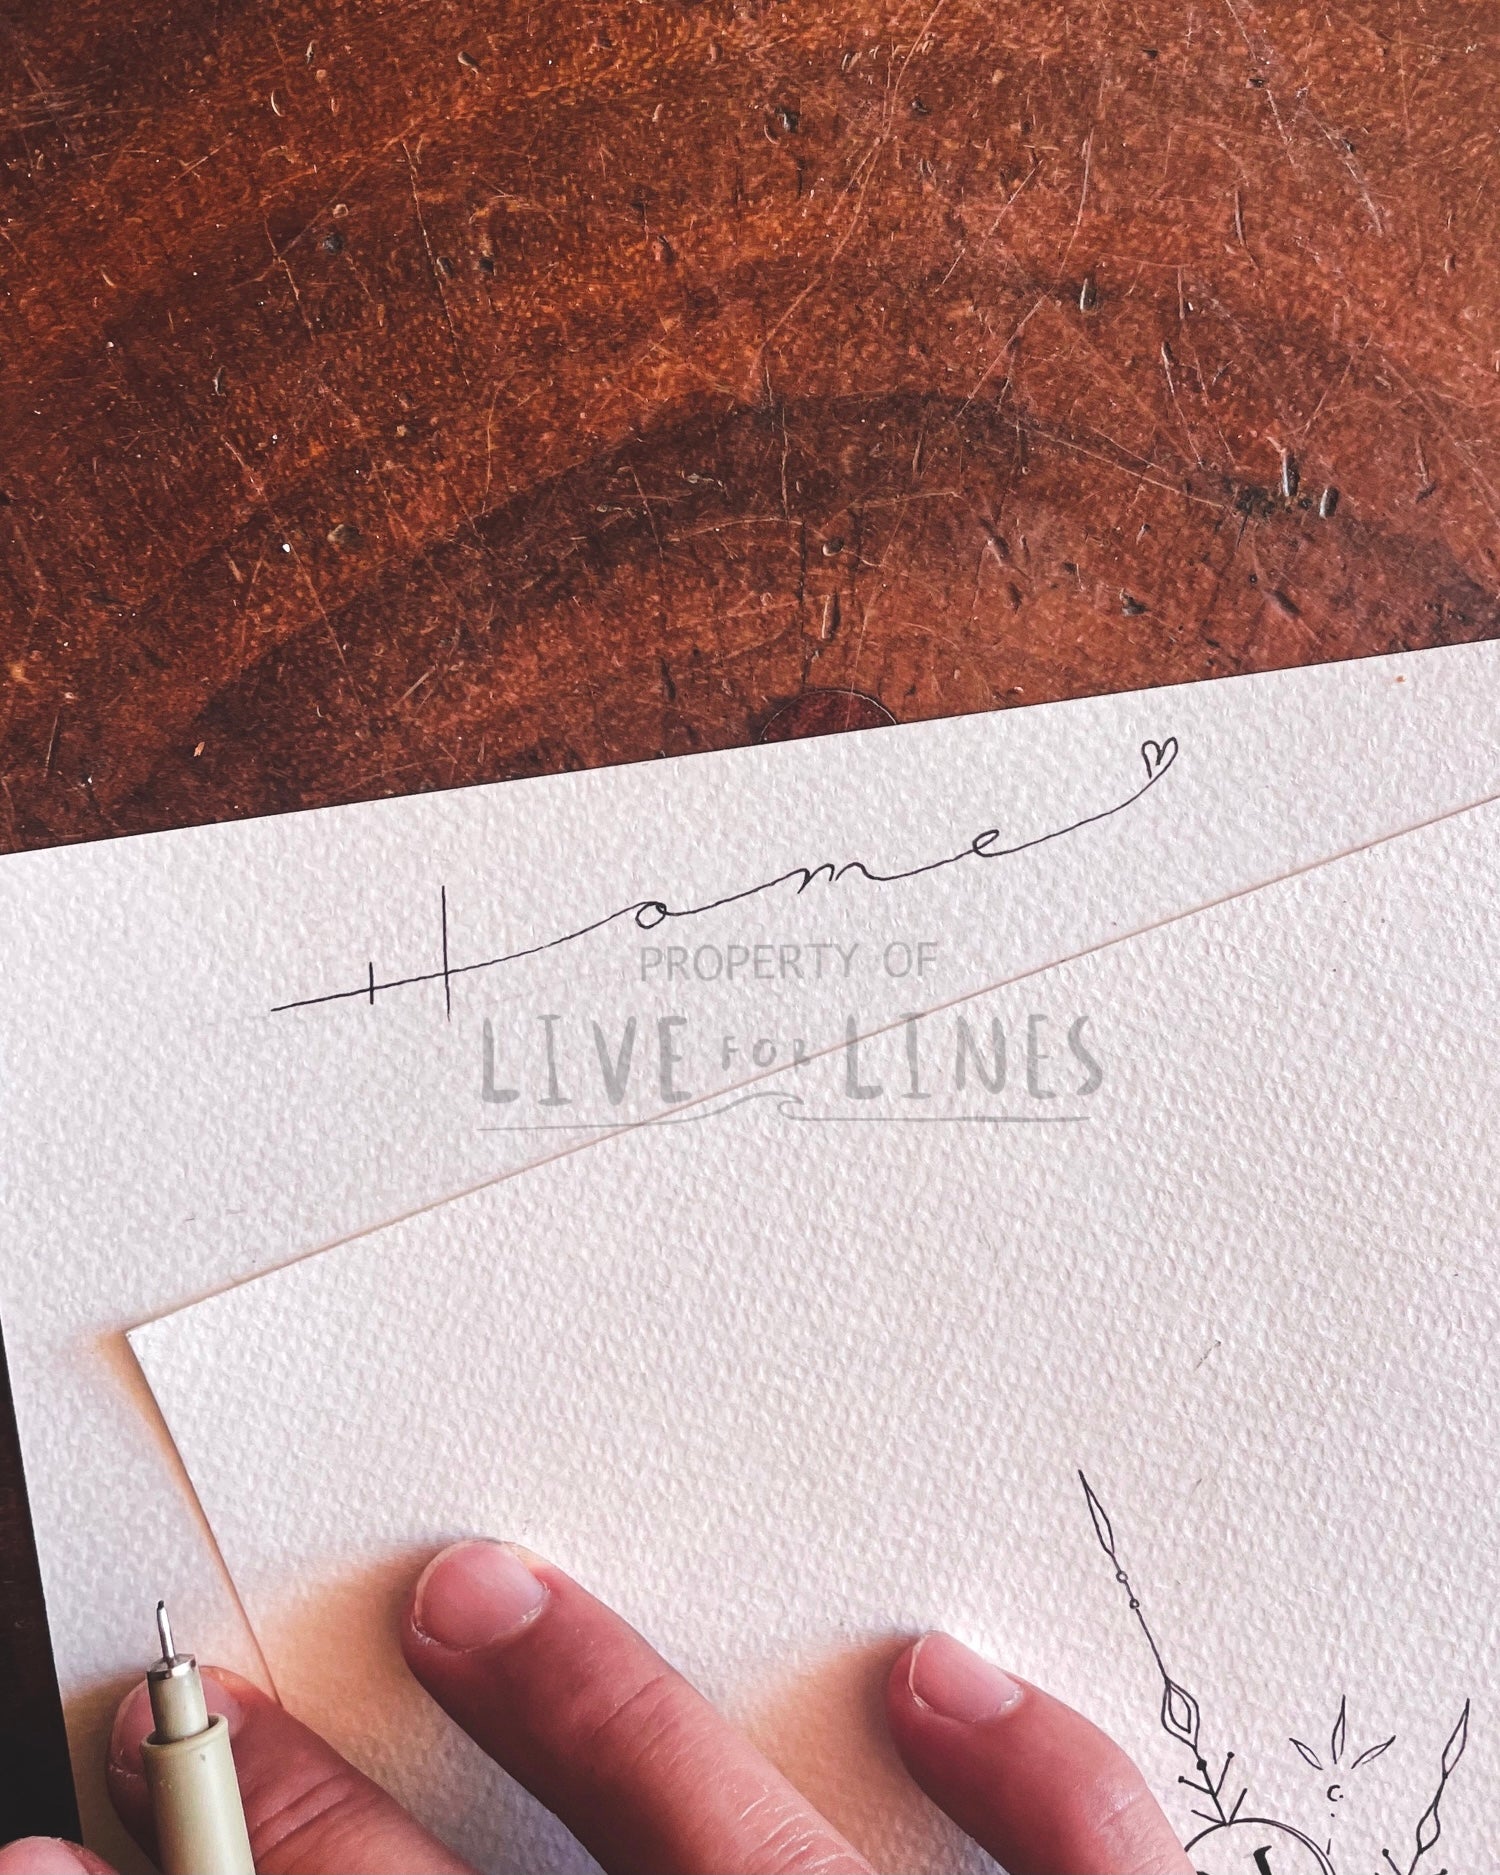 Home
PROPERTY OF
LIVE FOR LINES